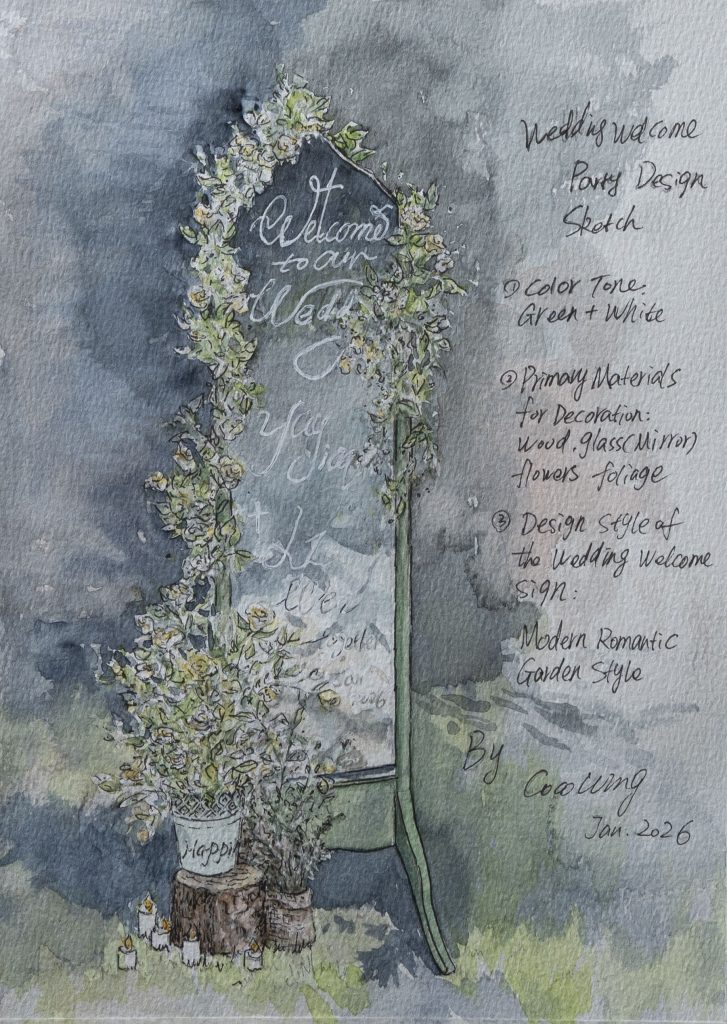 Welcome
to our
Wedd
+
Li
Jan
2026
Happi
Wedding Welcome
Party Design
Sketch
① Color Tone:
Green + White
② Primary Materials
for Decoration:
Wood, glass(Mirror)
flowers foliage
③ Design Style of
the Wedding Welcome
Sign:
Modern Romantic
Garden Style
By
Jan. 2026